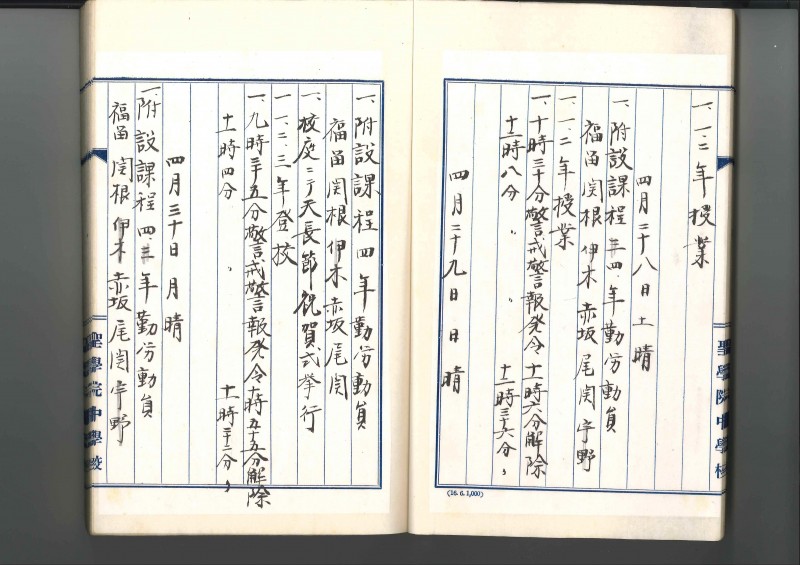 一、一、二年授業
四月二十八日 土 晴
一、附設課程三四、年勤労動員
福苗 関根 伊木 赤坂 尾関 宇野
一、一、二年授業
一、十時三十分警戒警報発令 十一時六分解除
十一時八分 〃 〃 十一時三十六分〃
四月二十九日 日 晴
聖學院中學校
(16.6.1,000)
一、附設課程四年勤労動員
福苗 関根 伊木 赤坂 尾関
一、校庭ニテ天長節祝賀式挙行
一、一、二、三年登校
一、九時三十五分警戒警報発令 十時五十五分解除
十一時四分 〃 十一時二十二分〃
四月三十日 月 晴
一、附設課程四、三年勤労動員
福苗 関根 伊木 赤坂 尾関 宇野
聖學院中學校